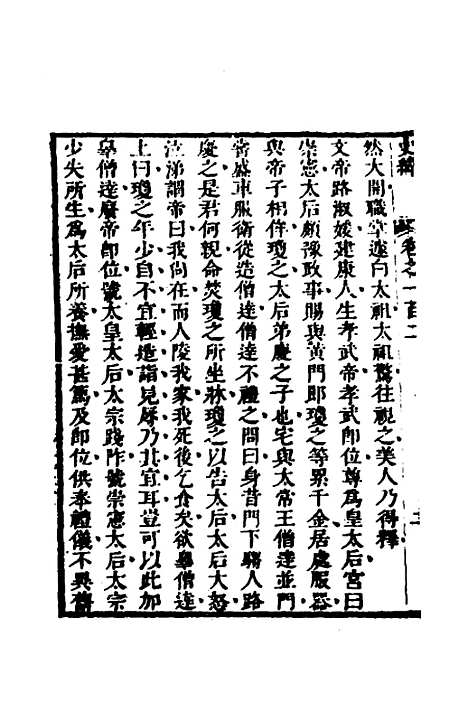 史緯 卷之一百二
然大開職堂遽白太祖太祖驚往視之美人乃得釋
文帝路淑媛建康人生孝武帝孝武即位尊爲皇太后宮曰
崇憲太后頗豫政事賜與黃門郎瓊之等累千金居處服器
與帝子相侔瓊之太后弟慶之子也宅與太常王僧達並門
嘗盛車服衛從造僧達僧達不禮之問曰身昔門下騶人路
慶之是君何親命焚瓊之所坐牀瓊之以告太后太后大怒
泣涕謂帝曰我尚在而人陵我家我死後乞食矣欲辠僧達
上曰瓊之年少自不宜輕造詣見辱乃其宜耳豈可以此加
辠僧達廢帝即位號太皇太后太宗踐阼號崇憲太后太宗
少失所生爲太后所養撫愛甚篤及即位供奉禮儀不異舊